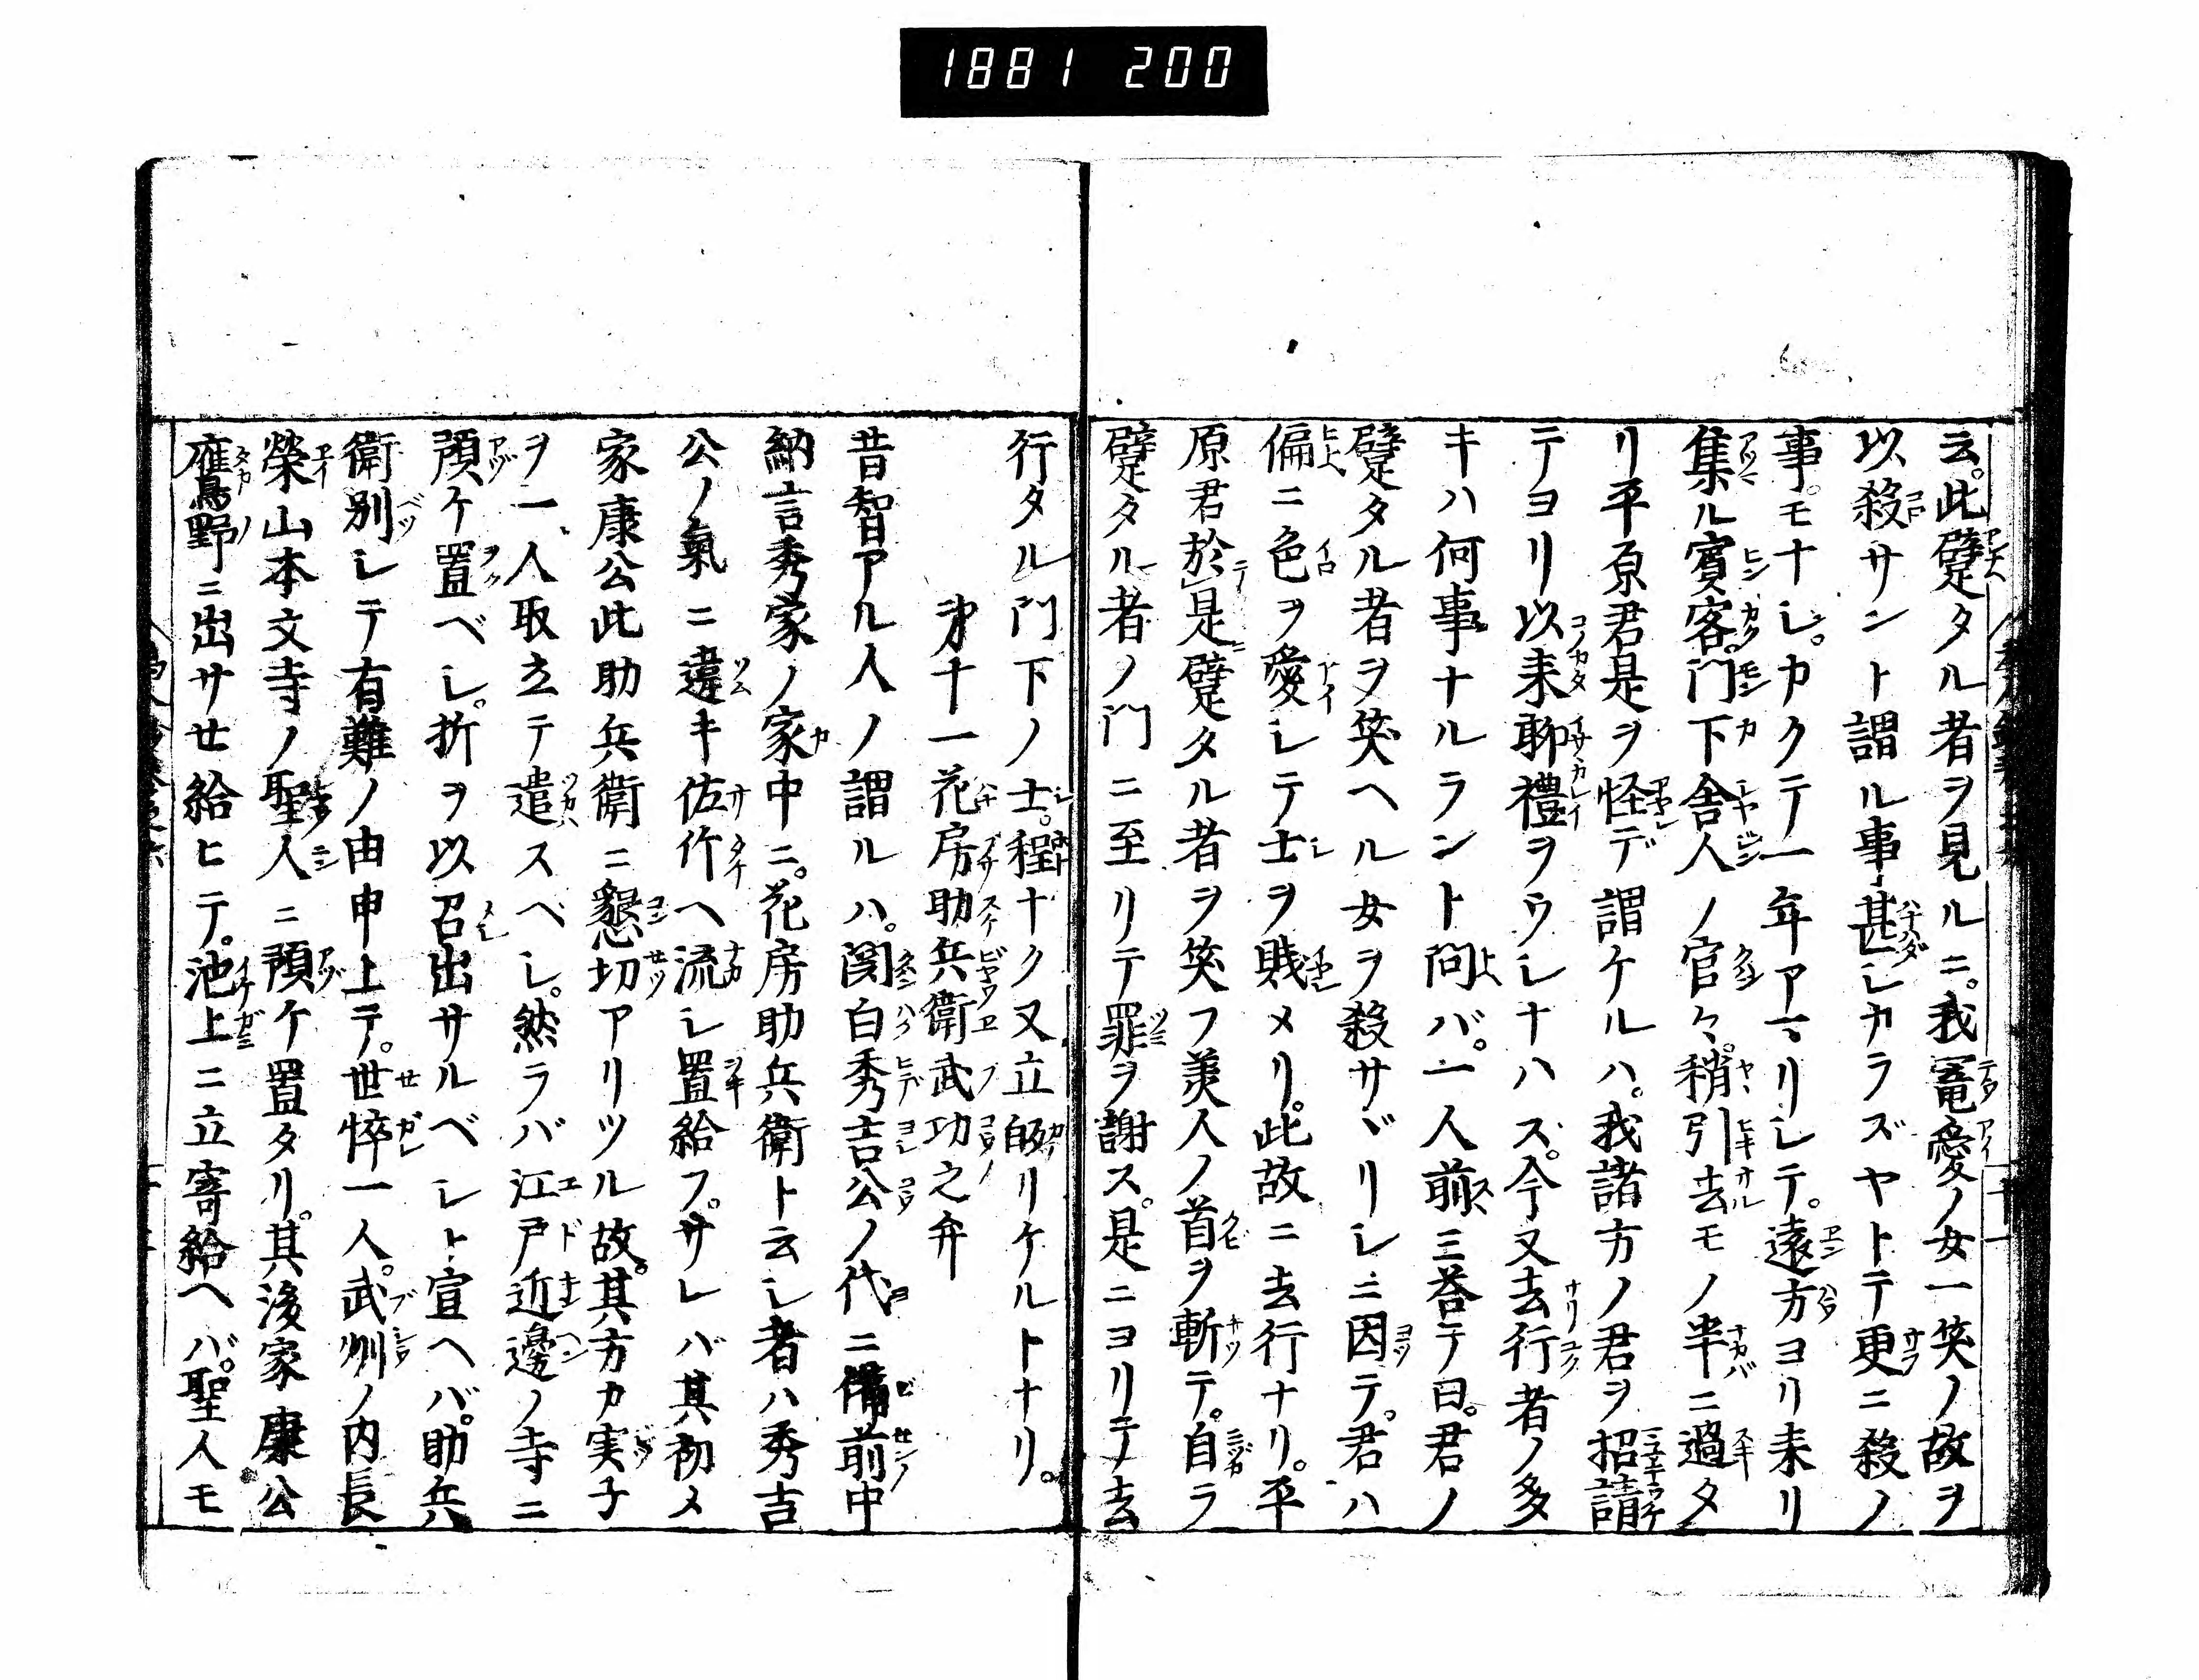 1881 200
云。此躄タル者ヲ見ルニ。我寵愛ノ女一笑ノ故ヲ
以殺サント謂ル事甚シカラズヤトテ更ニ殺ノ
事モナシ。カクテ一年アマリシテ。遠方ヨリ来リ
集ル賓客。門下舎人ノ官々。稍引去モノ半ニ過タ
リ平原君是ヲ怪デ謂ケルハ。我諸方ノ君ヲ招請
テヨリ以来聊禮ヲウシナハス。今又去行者ノ多
キハ何事ナルラント問バ。一人前ミ荅テ曰。君ノ
躄タル者ヲ笑ヘル女ヲ殺サヾリシニ因テ。君ハ
偏ニ色ヲ愛シテ士ヲ賎メリ。此故ニ去行ナリ。平
原君於是躄タル者ヲ笑フ美人ノ首ヲ斬テ。自ラ
躄タル者ノ門ニ至リテ罪ヲ謝ス。是ニヨリテ去
行タル門下ノ士。程ナク又立皈リケルトナリ。
㐧十一花房助兵衛武功之弁
昔智アル人ノ謂ルハ。関白秀吉公ノ代ニ備前中
納言秀家ノ家中ニ。花房助兵衛ト云シ者ハ秀吉
公ノ氣ニ違キ佐竹ヘ流シ置給フ。サレバ其初メ
家康公此助兵衛ニ懇切アリツル故。其方カ実子
ヲ一人取立テ遣スベシ。然ラバ江戸近邊ノ寺ニ
預ケ置ベシ。折ヲ以召出サルベシト宣ヘバ。助兵
衛別シテ有難ノ由申上テ。世悴一人。武州ノ内長
榮山本文寺ノ聖人ニ預ケ置タリ。其後家康公
鷹野ニ出サセ給ヒテ。池上ニ立寄給ヘバ。聖人モ